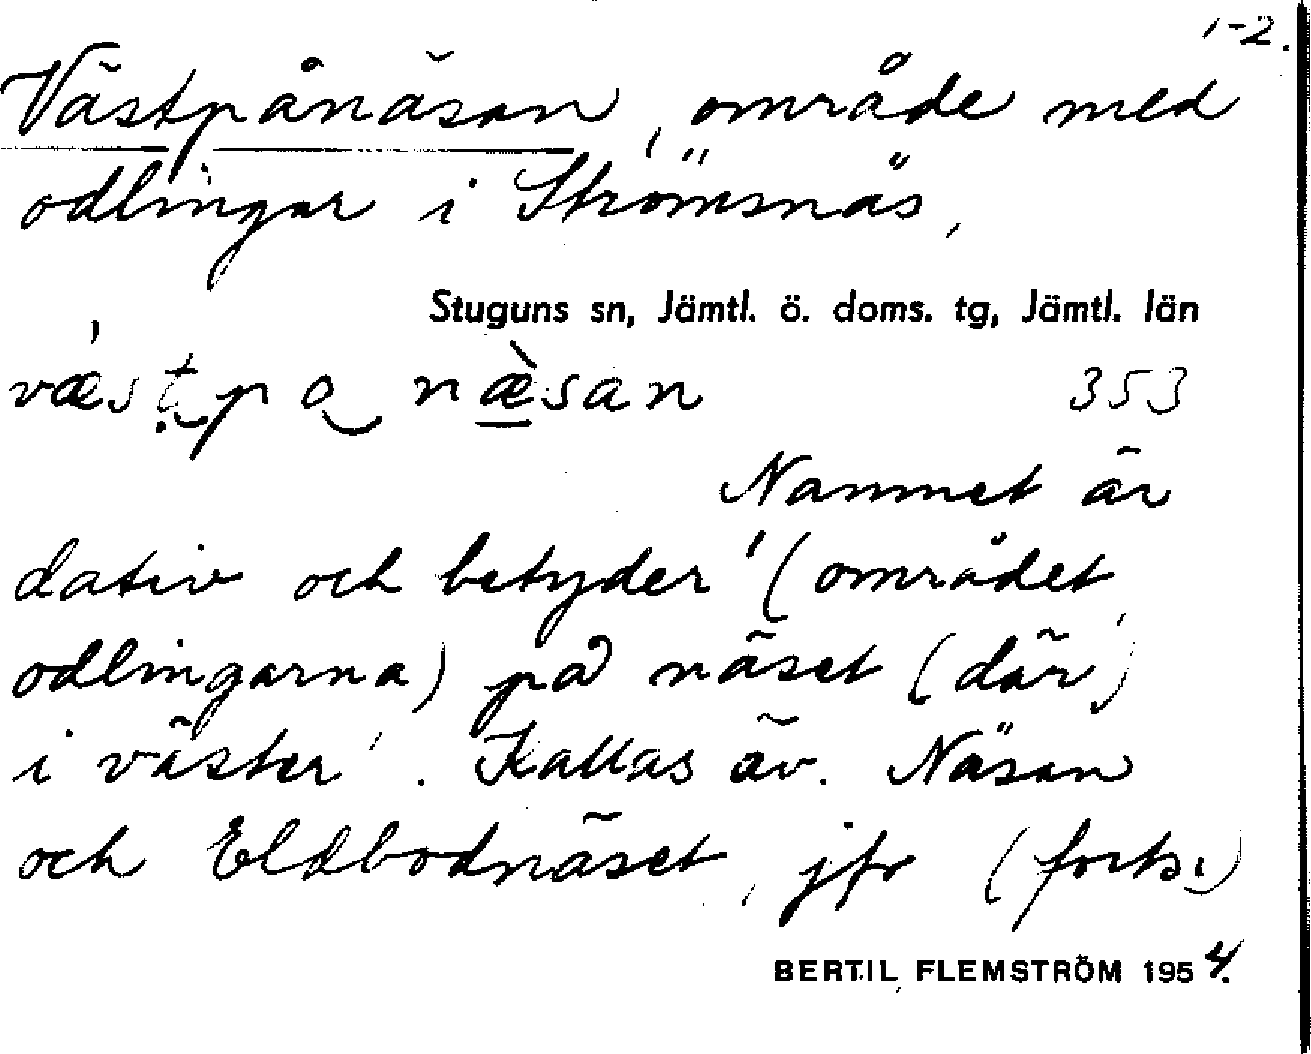 1-2.
Västpånäsan, område med
odlingar i Strömsnäs,
Stuguns sn, Jämtl. ö. doms. tg, Jämtl. län
vǽstpa næ̀san 353
Namnet är
dativ och betyder '(området,
odlingarna) på näset (där)
i väster'. Kallas äv. Näsan
och Eldbodnäset, jfr (forts.)
BERTIL FLEMSTRÖM 1954.